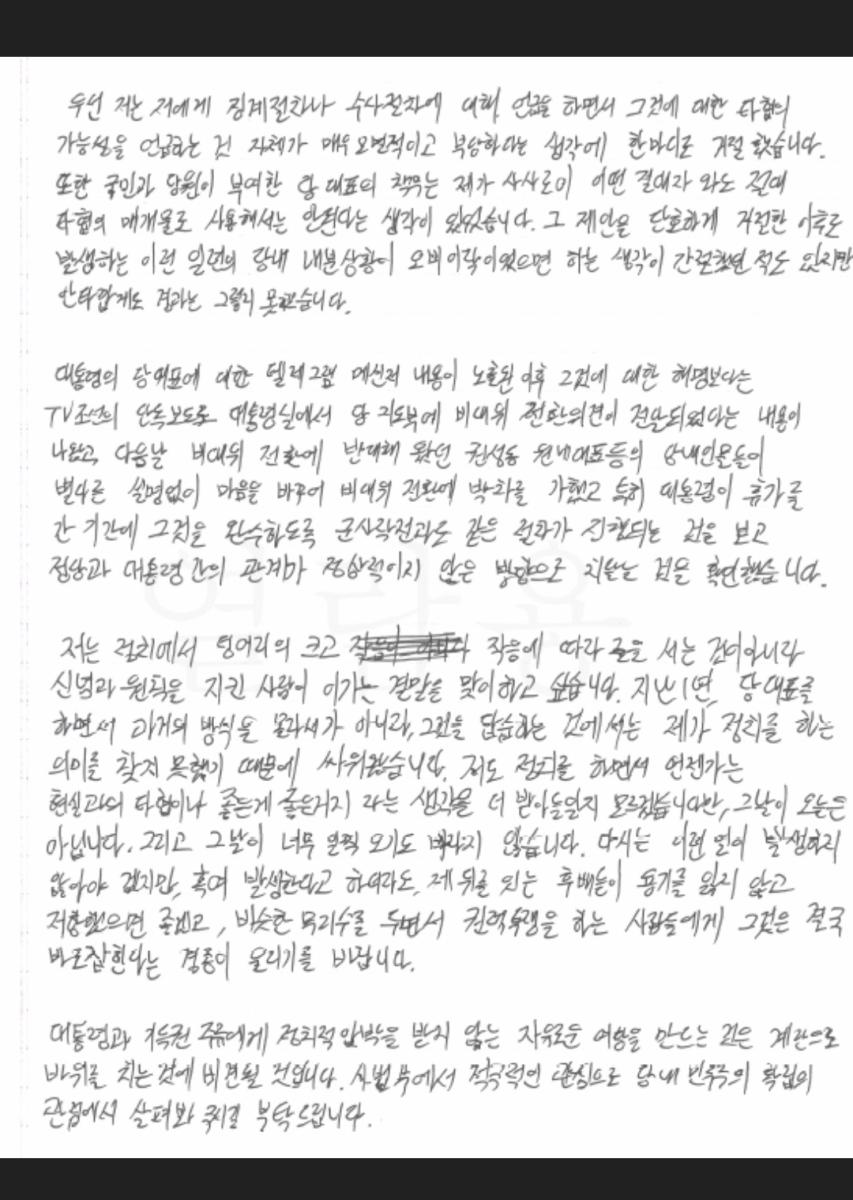 우선 저는 저에게 징계절차나 수사절차에 대해 언급을 하면서 그것에 대한 타협의
가능성을 언급하는 것 자체가 매우 모멸적이고 부당하다는 생각에 한마디로 거절 했습니다.
또한 국민과 당원이 부여한 당 대표의 책무는 제가 사사로이 어떤 절대자 와도 절대
타협의 매개물로 사용해서는 안된다는 생각이 있었습니다. 그 제안을 단호하게 거절한 이후로
발생하는 이런 일련의 당내 내분상황이 오비이락이었으면 하는 생각이 간절했던 적도 있지만
안타깝게도 결과는 그렇지 못했습니다.
대통령의 당대표에 대한 텔레그램 메신저 내용이 노출된 이후 그것에 대한 해명보다는
TV조선의 단독보도로 대통령실에서 당 지도부에 비대위 전환의견이 전달되었다는 내용이
나왔고, 다음날 비대위 전환에 반대해 왔던 권성동 원내대표등의 당내인물들이
별다른 설명없이 마음을 바꾸어 비대위 전환에 박차를 가했고 특히 대통령이 휴가를
간 기간에 그것을 완수하도록 군사작전과도 같은 전화가 진행되는 것을 보고
정당과 대통령 간의 관계가 정상적이지 않은 방향으로 치닫는 것을 확인했습니다.
저는 정치에서 덩어리의 크고 작음에 따라 줄을 서는 것이 아니라
신념과 원칙을 지킨 사람이 이기는 결말을 맞이하고 싶습니다. 지난 1년, 당 대표를
하면서 과거의 방식을 몰라서가 아니라, 그것을 답습하는 것에서는 제가 정치를 하는
의미를 찾지 못했기 때문에 싸워왔습니다. 저도 정치를 하면서 언젠가는
현실과의 타협이나 좋은게 좋은거지 라는 생각을 더 받아들일지 모르겠습니다만, 그날이 오늘은
아닙니다. 그리고 그날이 너무 일찍 오기도 바라지 않습니다. 다시는 이런 일이 발생하지
않아야 겠지만, 혹여 발생한다고 하더라도, 제 뒤를 잇는 후배들이 용기를 잃지 않고
저항했으면 좋겠고, 비슷한 무리수를 두면서 권력투쟁을 하는 사람들에게 그것은 결국
바로잡힌다는 경종이 울리기를 바랍니다.
대통령과 기득권 주류에게 정치적 압박을 받지 않는 자유로운 여당을 만드는 것은 계란으로
바위를 치는 것에 비견될 것입니다. 사법부에서 적극적인 관심으로 당내 민주주의 확립의
관점에서 살펴봐 주시길 부탁드립니다.